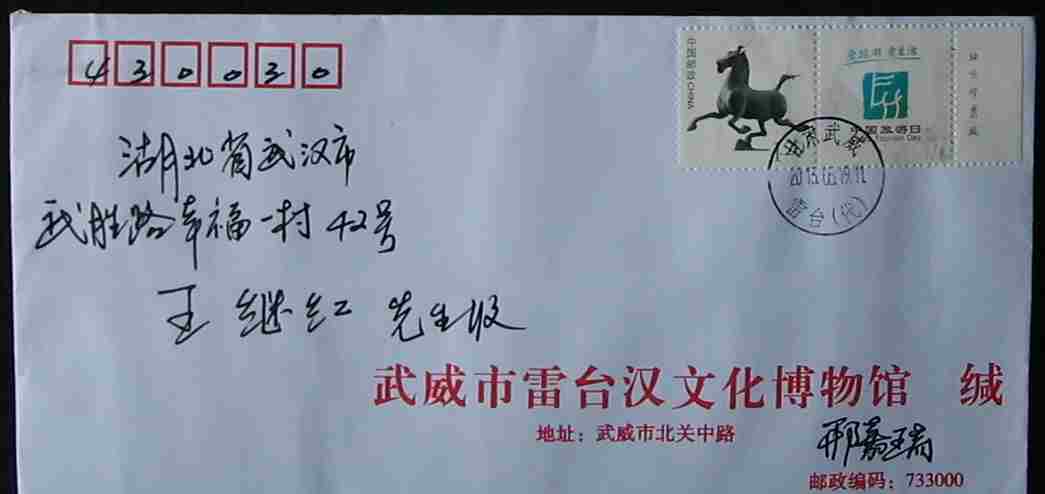 430030
中国邮政 CHINA
中国旅游日
甘肃武威
2015.05.19.11
雷台(代)
湖北省武汉市
武胜路幸福一村42号
王继红 先生收
武威市雷台汉文化博物馆 缄
地址：武威市北关中路
邮政编码：733000